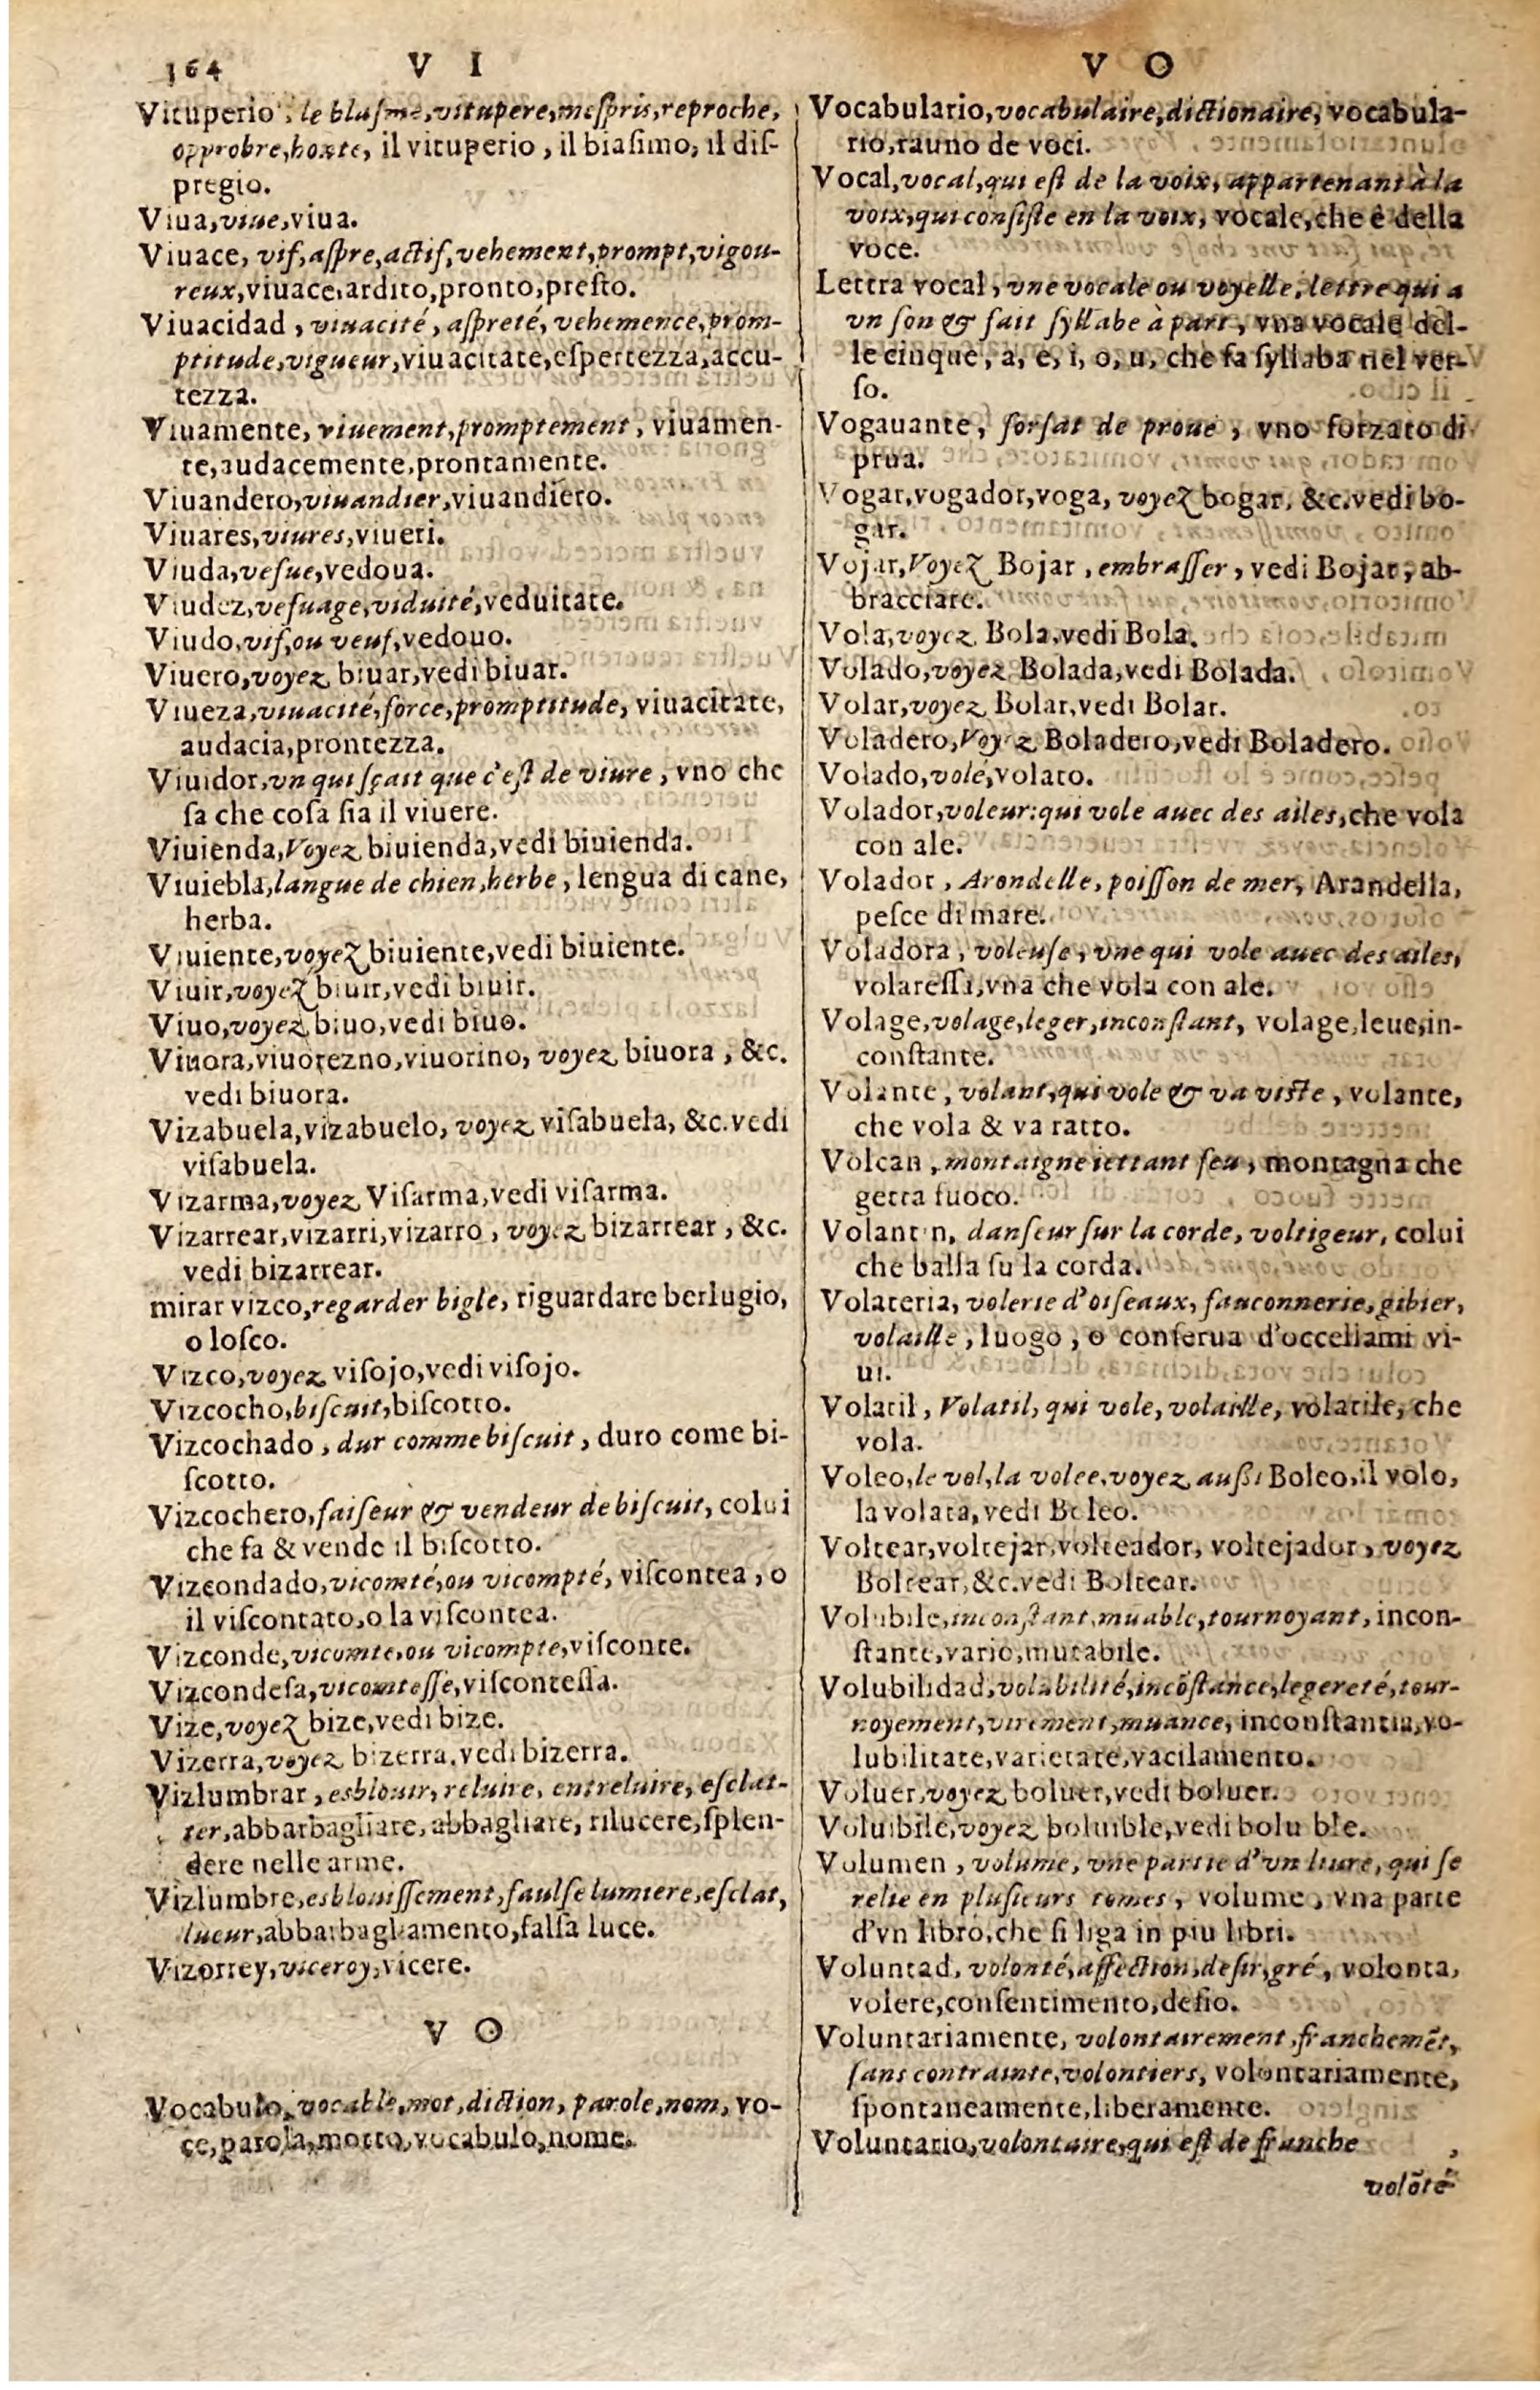 364 V I
Vituperio, le blaſme, vitupere, meſpris, reproche,
opprobre, honte, il vituperio, il biaſimo, il diſ-
pregio.
Viua, viue, viua.
Viuace, vif, aſpre, actif, vehement, prompt, vigou-
reux, viuace, ardito, pronto, preſto.
Viuacidad, viuacité, aſpreté, vehemence, prom-
ptitude, vigueur, viuacitate, eſpertezza, accu-
tezza.
Viuamente, viuement, promptement, viuamen-
te, audacemente, prontamente.
Viuandero, viuandier, viuandiero.
Viuares, viures, viueri.
Viuda, vefue, vedoua.
Viudez, vefuage, viduité, veduitate.
Viudo, vif, ou veuf, vedouo.
Viuero, voyez biuar, vedi biuar.
Viueza, viuacité, force, promptitude, viuacitate,
audacia, prontezza.
Viuidor, vn qui ſçait que c'eſt de viure, vno che
ſa che coſa ſia il viuere.
Viuienda, Voyez biuienda, vedi biuienda.
Viuiebla, langue de chien, herbe, lengua di cane,
herba.
Viuiente, voyez biuiente, vedi biuiente.
Viuir, voyez biuir, vedi biuir.
Viuo, voyez biuo, vedi biuo.
Viuora, viuorezno, viuorino, voyez biuora, &c.
vedi biuora.
Vizabuela, vizabuelo, voyez viſabuela, &c. vedi
viſabuela.
Vizarma, voyez Viſarma, vedi viſarma.
Vizarrear, vizarri, vizarro, voyez bizarrear, &c.
vedi bizarrear.
mirar vizco, regarder bigle, riguardare berlugio,
o loſco.
Vizco, voyez viſojo, vedi viſojo.
Vizcocho, biſcuit, biſcotto.
Vizcochado, dur comme biſcuit, duro come bi-
ſcotto.
Vizcochero, faiſeur & vendeur de biſcuit, colui
che fa & vende il biſcotto.
Vizcondado, vicomté, ou vicompté, viſcontea, o
il viſcontato, o la viſcontea.
Vizconde, vicomte, ou vicompte, viſconte.
Vizcondeſa, vicomteſſe, viſconteſſa.
Vize, voyez bize, vedi bize.
Vizerra, voyez bizerra, vedi bizerra.
Vizlumbrar, esblouir, reluire, entreluire, eſclat-
ter, abbarbagliare, abbagliare, rilucere, ſplen-
dere nelle arme.
Vizlumbre, esblouiſſement, faulſe lumiere, eſclat,
lueur, abbarbagliamento, falſa luce.
Vizorrey, viceroy, vicere.
V O
Vocabulo, vocable, mot, diction, parole, nom, vo-
ce, parola, motto, vocabulo, nome.
V O
Vocabulario, vocabulaire, dictionaire, vocabula-
rio, rauno de voci.
Vocal, vocal, qui eſt de la voix, appartenant à la
voix, qui conſiſte en la voix, vocale, che è della
voce.
Lettra vocal, vne vocale ou voyelle, lettre qui a
vn ſon & fait ſyllabe à part, vna vocale del-
le cinque, a, e, i, o, u, che fa ſyllaba nel ver-
ſo.
Vogauante, forſat de proue, vno forzato di
prua.
Vogar, vogador, voga, voyez bogar, &c. vedi bo-
gar.
Vojar, Voyez Bojar, embraſſer, vedi Bojar, ab-
bracciare.
Vola, voyez Bola, vedi Bola.
Volado, voyez Bolada, vedi Bolada.
Volar, voyez Bolar, vedi Bolar.
Voladero, Voyez Boladero, vedi Boladero.
Volado, volé, volato.
Volador, voleur: qui vole auec des ailes, che vola
con ale.
Volador, Arondelle, poiſſon de mer, Arandella,
peſce di mare.
Voladora, voleuſe, vne qui vole auec des ailes,
volareſſa, vna che vola con ale.
Volage, volage, leger, inconſtant, volage, leue, in-
conſtante.
Volante, volant, qui vole & va viſte, volante,
che vola & va ratto.
Volcan, montaigne iettant feu, montagna che
getta fuoco.
Volantin, danſeur ſur la corde, voltigeur, colui
che balla ſu la corda.
Volateria, volerie d'oiſeaux, fauconnerie, gibier,
volaille, luogo, o conſerua d'occellami vi-
ui.
Volatil, Volatil, qui vole, volaille, volatile, che
vola.
Voleo, le vol, la volee, voyez auſſi Boleo, il volo,
la volata, vedi Boleo.
Voltear, voltejar, volteador, voltejador, voyez
Boltear, &c. vedi Boltear.
Volubile, inconſtant, muable, tournoyant, incon-
ſtante, vario, mutabile.
Volubilidad, volubilité, incõſtance, legereté, tour-
noyement, virement, muance, inconſtantia, vo-
lubilitate, varietate, vacilamento.
Voluer, voyez boluer, vedi boluer.
Voluibile, voyez boluible, vedi bolu ble.
Volumen, volume, vne partie d'vn liure, qui ſe
relie en pluſieurs tomes, volume, vna parte
d'vn libro, che ſi liga in piu libri.
Voluntad, volonté, affection, deſir, gré, volonta,
volere, conſentimento, deſio.
Voluntariamente, volontairement, franchemẽt,
ſans contrainte, volontiers, volontariamente,
ſpontaneamente, liberamente.
Voluntario, volontaire, qui eſt de franche
volõté